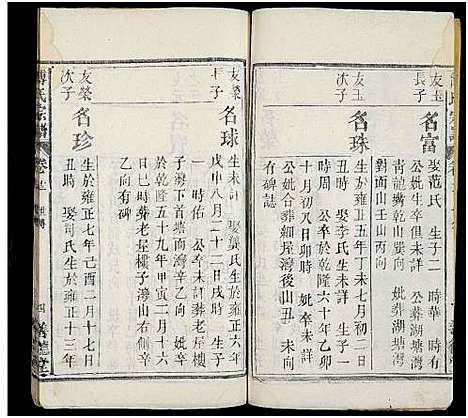 友玉長子
名富
娶范氏 生子二 時華 時有
公妣生卒俱未詳 公葬湖塘灣
青龍嘴乾山巽向 妣葬湖塘灣
對面山壬山丙向
名珠
生於雍正五年丁未七月初二日
丑時 娶李氏生未詳 生子一
時周 公卒於乾隆六十年乙卯
十月初八日卯時 妣
公妣合葬細屋灣後山丑 未向
有碑誌
友榮長子
名球
生未詳 娶龔氏生於雍正六年
戊申八月二十二日戌時 生子
一時佑 公卒未詳葬老屋樓
子灣下首塘面灣辛乙向 妣卒
於乾隆五十九年甲寅二月十六
日巳時葬老屋樓子灣山右側辛
乙向 有碑
友榮次子
名珍
生於雍正七年己酉二月十七日
丑時 娶司氏生於雍正十三年
傅氏宗譜
卷
四